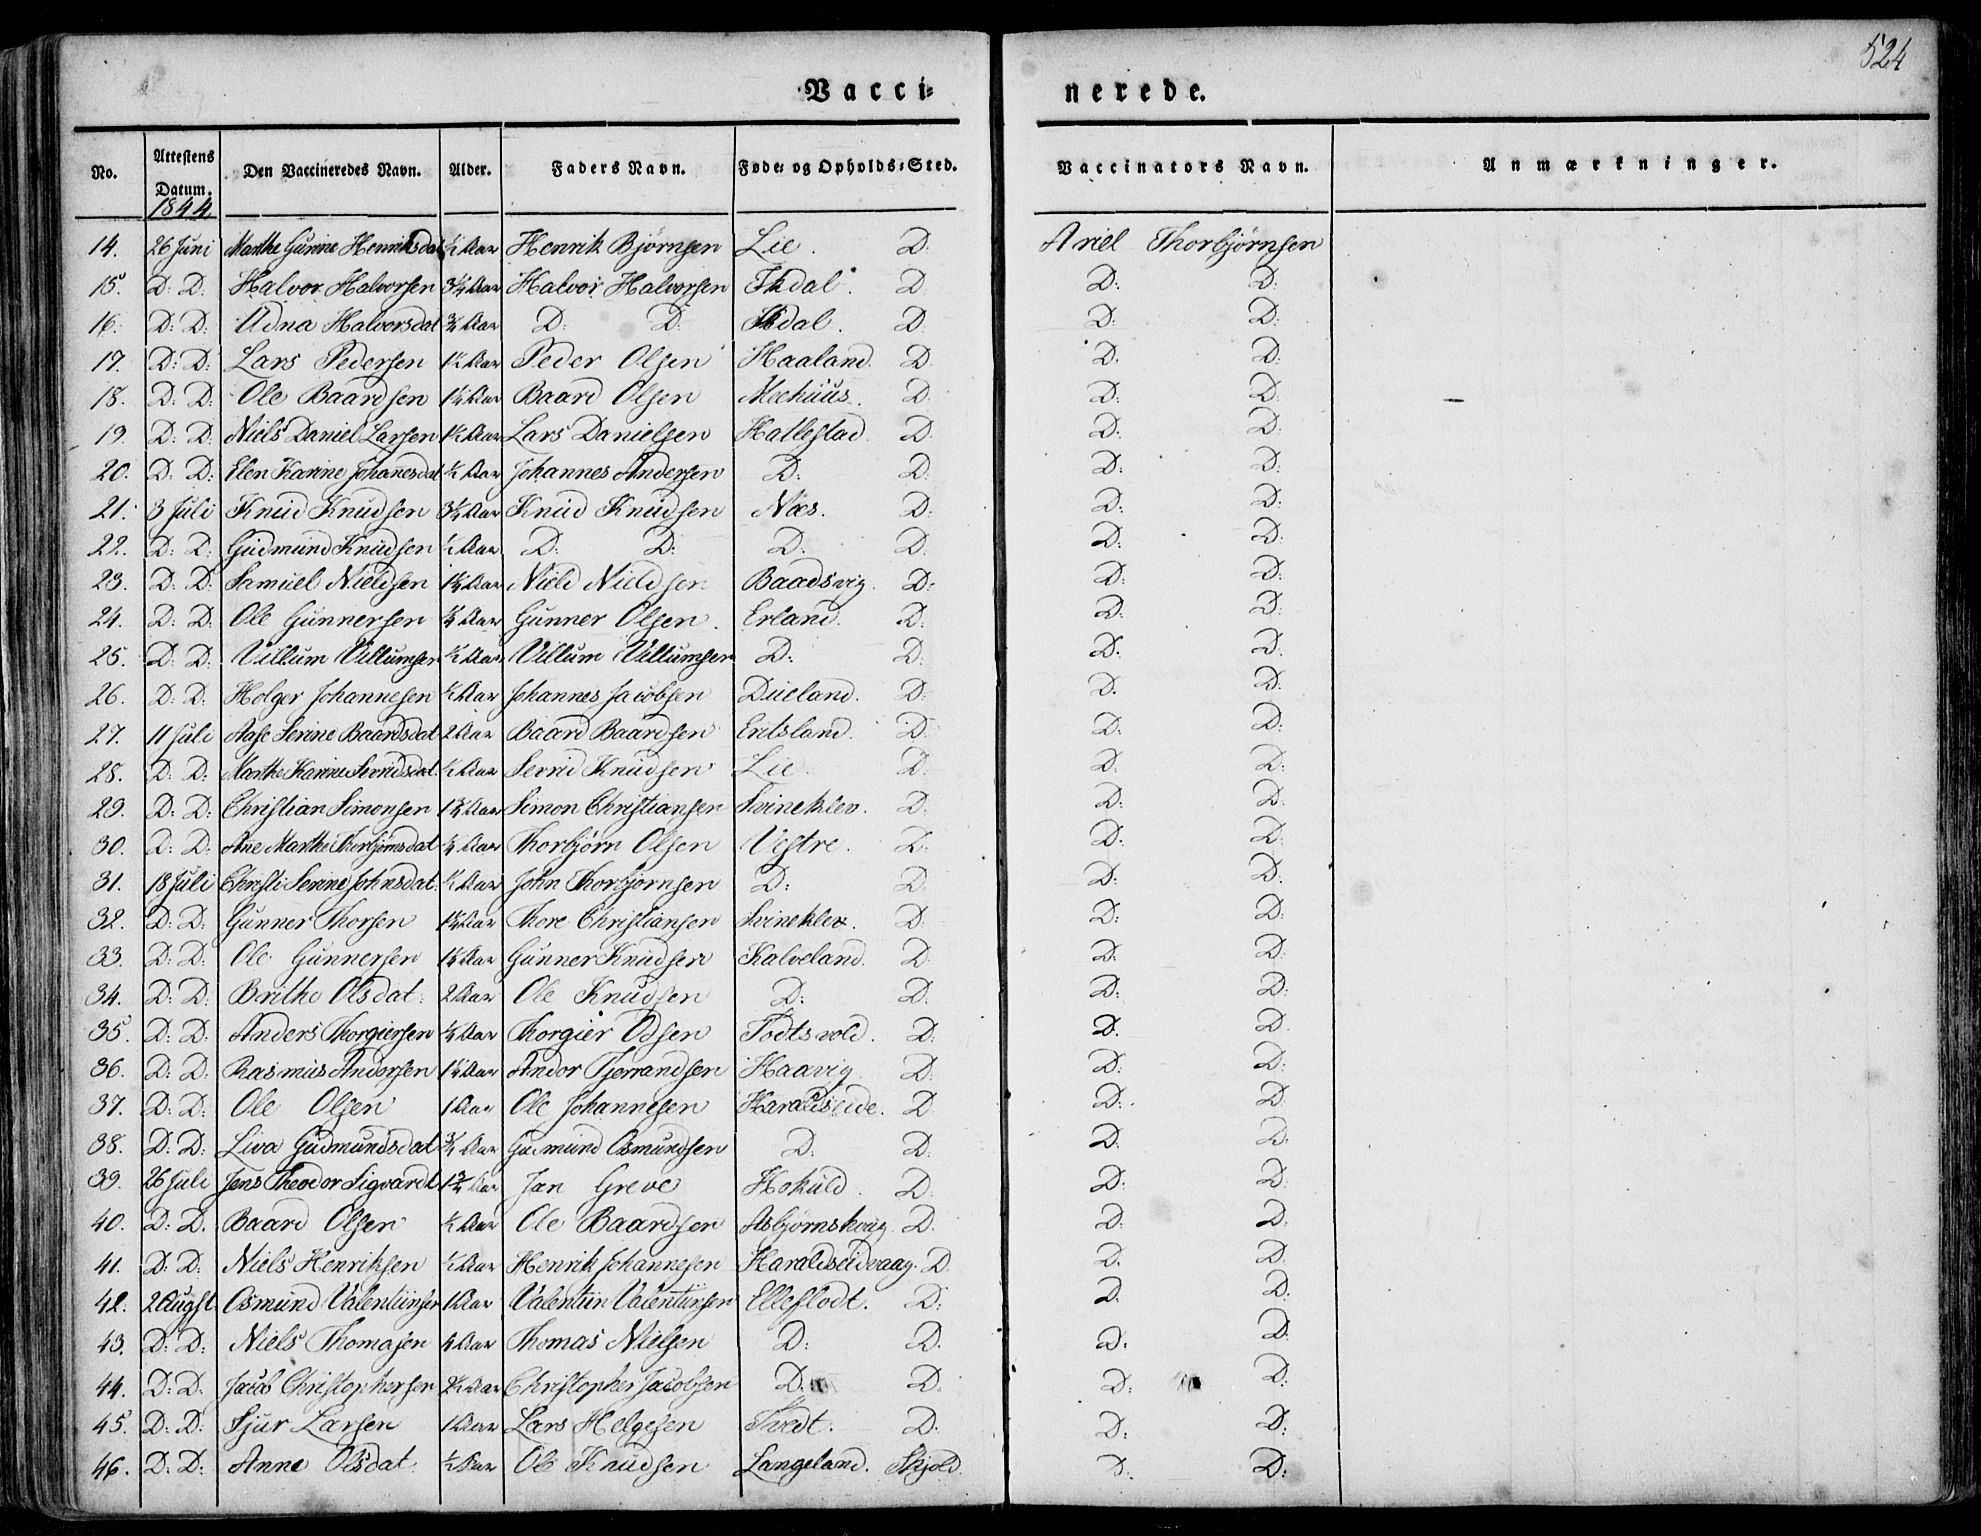 524
Vacci= nerede.
No. Attestens Datum. Den Vaccineredes Navn. Alder. Faders Navn. Føde= og Opholds=Sted. Vaccinators Navn. Anmærkninger.
1844
14. 26 Juni Marthe Gurine Henriksdat ½ Aar Henrik Bjørnsen Lie. D: Ariel Thorbjørnsen
15. D: D: Halvor Halvorsen 3¼ Aar Halvor Halvorsen D: D: D:
16. D: D: Udna Halvorsdat ¾ Aar D: D: D: D: D:
17. D: D: Lars Pedersen Aar Peder Olsen Haaland. D: D: D:
18. D: D: Ole Baardsen 1¼ Aar Baard Olsen Meehuus. D: D: D:
19. D: D: Niels Daniel Larsen Aar Lars Danielsen Hallestad. D: D: D:
20. D: D: Elen Karine Johanesdat Aar Johannes Andersen D: D: D: D:
21. 3 Juli Knud Knudsen Aar Knud Knudsen Næs. D: D: D:
22. D: D: Gudmund Knudsen ½ Aar D: D: D: D: D: D:
23. D: D: Samuel Nieldsen Aar Nield Nieldsen Baadsvig. D: D: D:
24. D: D: Ole Gunnersen Aar Gunner Olsen. Erland. D: D: D:
25. D: D: Villum Villumsen Aar Villum Villumsen D: D: D: D:
26. D: D: Holger Johannesen Aar Johannes Jacobsen Dueland. D: D: D:
27. 11 Juli Aase Serine Baardsdat 2 Aar Baard Baardsen Eritsland. D: D: D:
28. D: D: Marthe Karine Sevridsdat. ½ Aar Sevrid Knudsen Lie. D: D: D:
29. D: D: Christian Simonsen 1¾ Aar Simon Christiansen Svineklev. D: D: D:
30. D: D: Ane Marthe Thorbjørnsdat Aar Thorbjørn Olsen Vestre. D: D: D:
31. 18 Juli Christi Serine Johnsdat. Aar John Thorbjørnsen D: D: D: D:
32. D: D: Gunner Thorsen Aar Thore Christiansen Svineklev. D: D: D:
33. D: D: Ole Gunnersen Aar Gunner Knudsen Kalveland. D: D: D:
34. D: D: Brithe Olsdat. 2 Aar Ole Knudsen D: D: D: D:
35. D: D: Anders Thorgiersen Aar Thorgier Odsen Todtsvold. D: D: D:
36. D: D: Rasmus Andorsen Aar Andor Tjerrandsen Haavig. D: D: D:
37. D: D: Ole Olsen 1 Aar Ole Johannesen Haraldseide. D: D: D:
38. D: D: Liva Gudmundsdat ¾ Aar Gudmund Osmundsen D: D: D: D:
39. 26 Juli Jens Theodor Sigvardt 1¾ Aar Jan Greve Hokuld. D: D: D:
40. D: D: Baard Olsen Aar Ole Baardsen Asbjørnskvig. D: D: D:
41. D: D: Niels Henriksen ½ Aar Henrik Johannesen Haraldseidvaag. D: D: D:
42. 2 August Osmund Valentiinsen 1 Aar Valentiin Valentiinsen Elleflodt. D: D: D:
43. D: D: Niels Thomasen Aar Thomas Nielsen D: D: D: D:
44. D: D: Jacob Christophersen Aar Christopher Jacobsen D: D: D: D:
45. D: D: Sjur Larsen 1 Aar Lars Helgesen Tvedt. D: D: D:
46. D: D: Anne Olsdat. ½ Aar Ole Knudsen Langeland. Skjold. D: D: